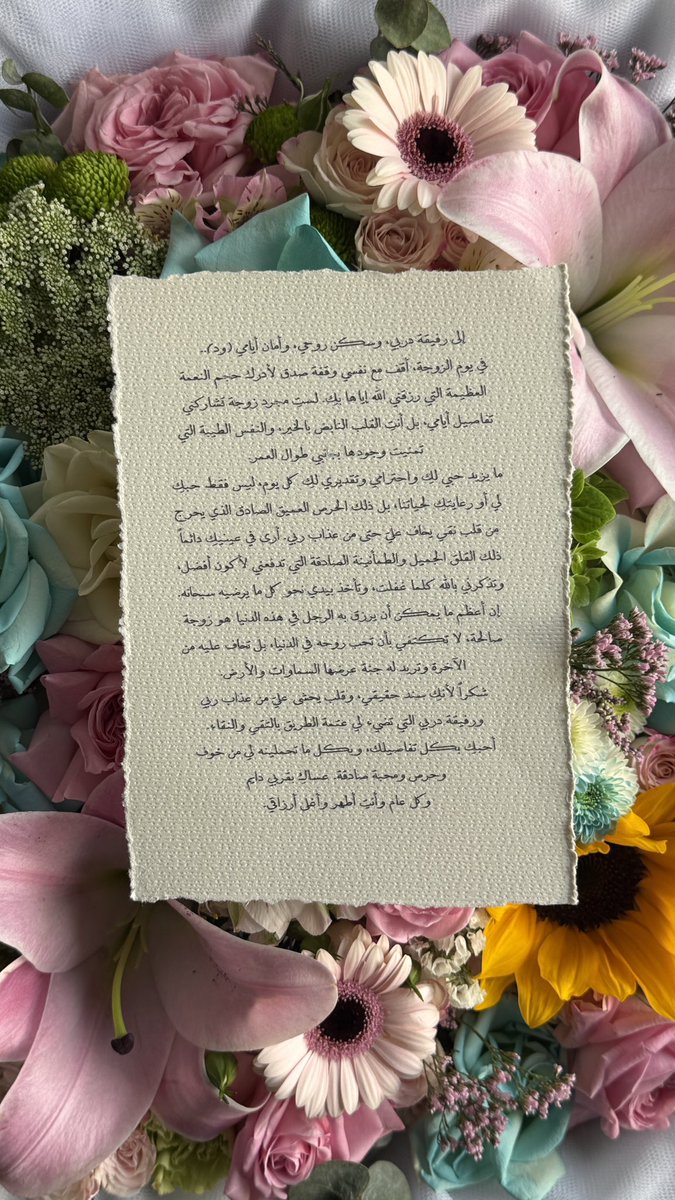 إلى رفيقة دربي، وسكن روحي، وأمان أيامي (ود)..
في يوم الزوجة، أقف مع نفسي وقفة صدق لأدرك حجم النعمة
العظيمة التي رزقني الله إياها بك. لستِ مجرد زوجة تشاركني
تفاصيل أيامي، بل أنتِ القلب النابض بالخير، والنفس الطيبة التي
تمنيت وجودها بجانبي طوال العمر.
ما يزيد حبي لكِ واحترامي وتقديري لك كل يوم، ليس فقط حبك
لي أو رعايتك لحياتنا، بل ذلك الحرص العميق الصادق الذي يخرج
من قلب نقي يخاف عليّ حتى من عذاب ربي. أرى في عينيكِ دائماً
ذلك القلق الجميل والطمأنينة الصادقة التي تدفعني لأكون أفضل،
وتذكرني بالله كلما غفلت، وتأخذ بيدي نحو كل ما يرضيه سبحانه.
إن أعظم ما يمكن أن يرزق به الرجل في هذه الدنيا هو زوجة
صالحة، لا تكتفي بأن تحب روحه في الدنيا، بل تخاف عليه من
الآخرة وتريد له جنة عرضها السماوات والأرض.
شكراً لأنكِ سند حقيقي، وقلب يخشى عليّ من عذاب ربي
ورفيقة دربي التي تضيء لي عتمة الطريق بالتقى والنقاء.
أحبك بكل تفاصيلك، وبكل ما تحملينه لي من خوف
وحرص ومحبة صادقة. عساكِ بقربي دايم
وكل عام وأنتِ أطهر وأغلى أرزاقي.